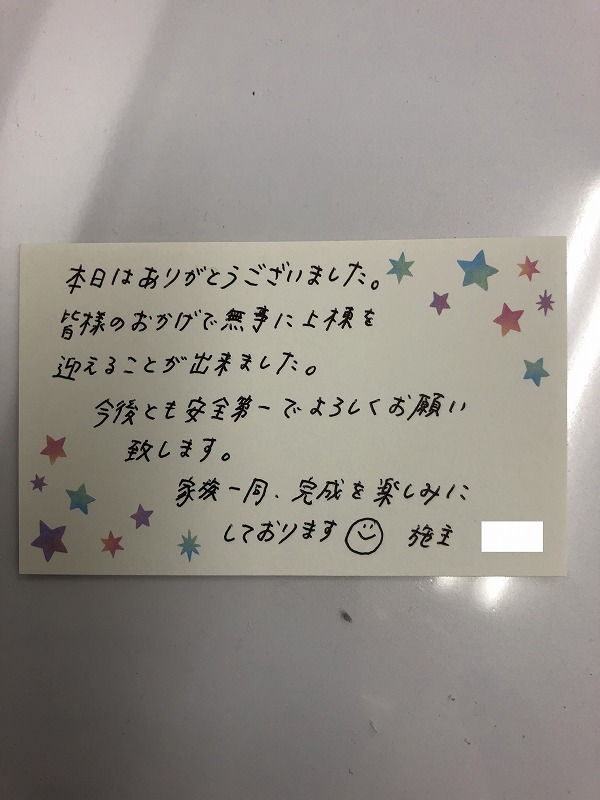 本日はありがとうございました。
皆様のおかげで無事に上棟を
迎えることが出来ました。
今後とも安全第一でよろしくお願い
致します。
家族一同、完成を楽しみに
しております 施主